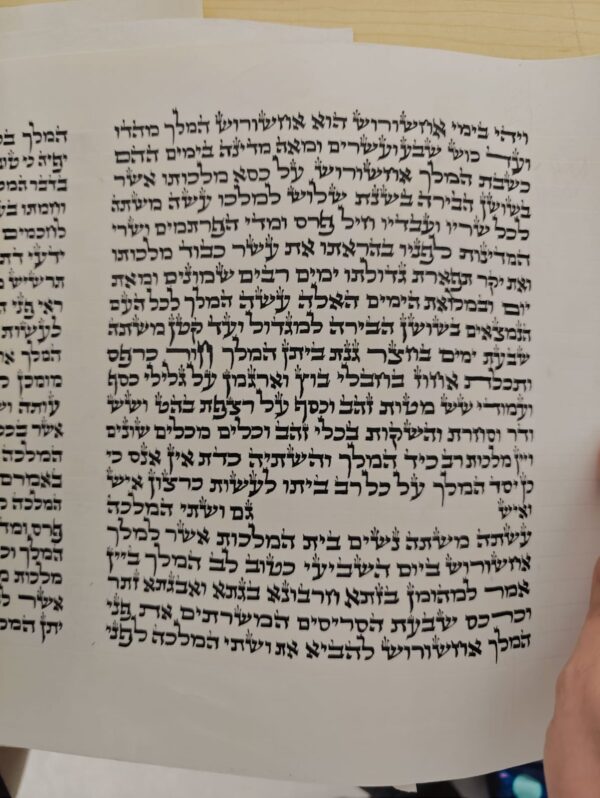 ויהי בימי אחשורוש הוא אחשורוש המלך מהדו
ועד כוש שבע ועשרים ומאה מדינה בימים ההם
כשבת המלך אחשורוש על כסא מלכותו אשר
בשושן הבירה בשנת שלוש למלכו עשה משתה
לכל שריו ועבדיו חיל פרס ומדי הפרתמים ושרי
המדינות לפניו בהראתו את עשר כבוד מלכותו
ואת יקר תפארת גדולתו ימים רבים שמונים ומאת
יום ובמלואת הימים האלה עשה המלך לכל העם
הנמצאים בשושן הבירה למגדול ועד קטן משתה
שבעת ימים בחצר גנת ביתן המלך חור כרפס
ותכלת אחוז בחבלי בוץ וארגמן על גלילי כסף
ועמודי שש מטות זהב וכסף על רצפת בהט ושש
ודר וסחרת והשקות בכלי זהב וכלים מכלים שונים
ויין מלכות רב כיד המלך והשתיה כדת אין אנס כי
כן יסד המלך על כל רב ביתו לעשות כרצון איש
ואיש גם ושתי המלכה
עשתה משתה נשים בית המלכות אשר למלך
אחשורוש ביום השביעי כטוב לב המלך ביין
אמר למהומן בזתא חרבונא בגתא ואבגתא זתר
וכרכס שבעת הסריסים המשרתים את פני
המלך אחשורוש להביא את ושתי המלכה לפני
המלך
יפיה כי
בדבר
וחמתו
לחכמים
ידעי
תרשיש
ראי פני
לעשות
המלך
מומכן
עותה
אשר
המלכה
באמרם
המלכה
פרס
המלך
מלכות
אשר
יתן